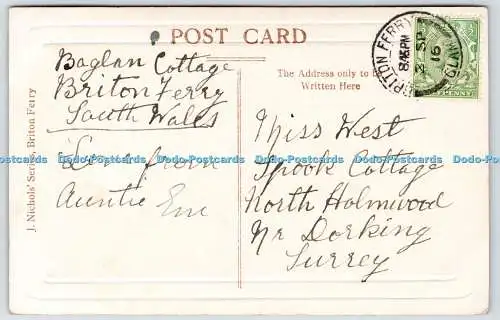 POST CARD
Baglan Cottage
Briton Ferry
South Wales
Love from
Auntie Em
The Address only to be
Written Here
BRITON FERRY
8.45PM
SP
16
PENNY
Miss West
Spook Cottage
North Holmwood
Nr Dorking
Surrey
J. Nichols' Series, Briton Ferry
Dodo-Postcards Dodo-Postcards Dodo-Postcards Dodo-Postcards Dodo-Postcards Dodo-Postcards